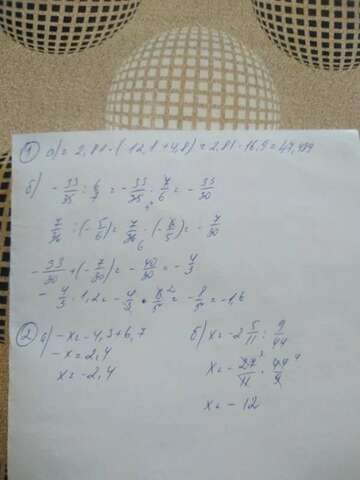 1 a) = 2,81 - (-12,1 + 4,8) = 2,81 · 16,9 = 47,489
б) - 33/35 : 6/7 = - 33/35 · 7/6 = - 33/30
7/36 : (- 5/6) = 7/36 · (- 6/5) = - 7/30
- 33/30 + (- 7/30) = - 40/30 = - 4/3
- 4/3 · 1,2 = - 4/3 · 6/5 = - 8/5 = - 1,6
2 a) -x = -4,3 + 6,7
-x = 2,4
x = -2,4
б) x = -2 5/11 : 9/44
x = - 27/11 · 44/9
x = - 12